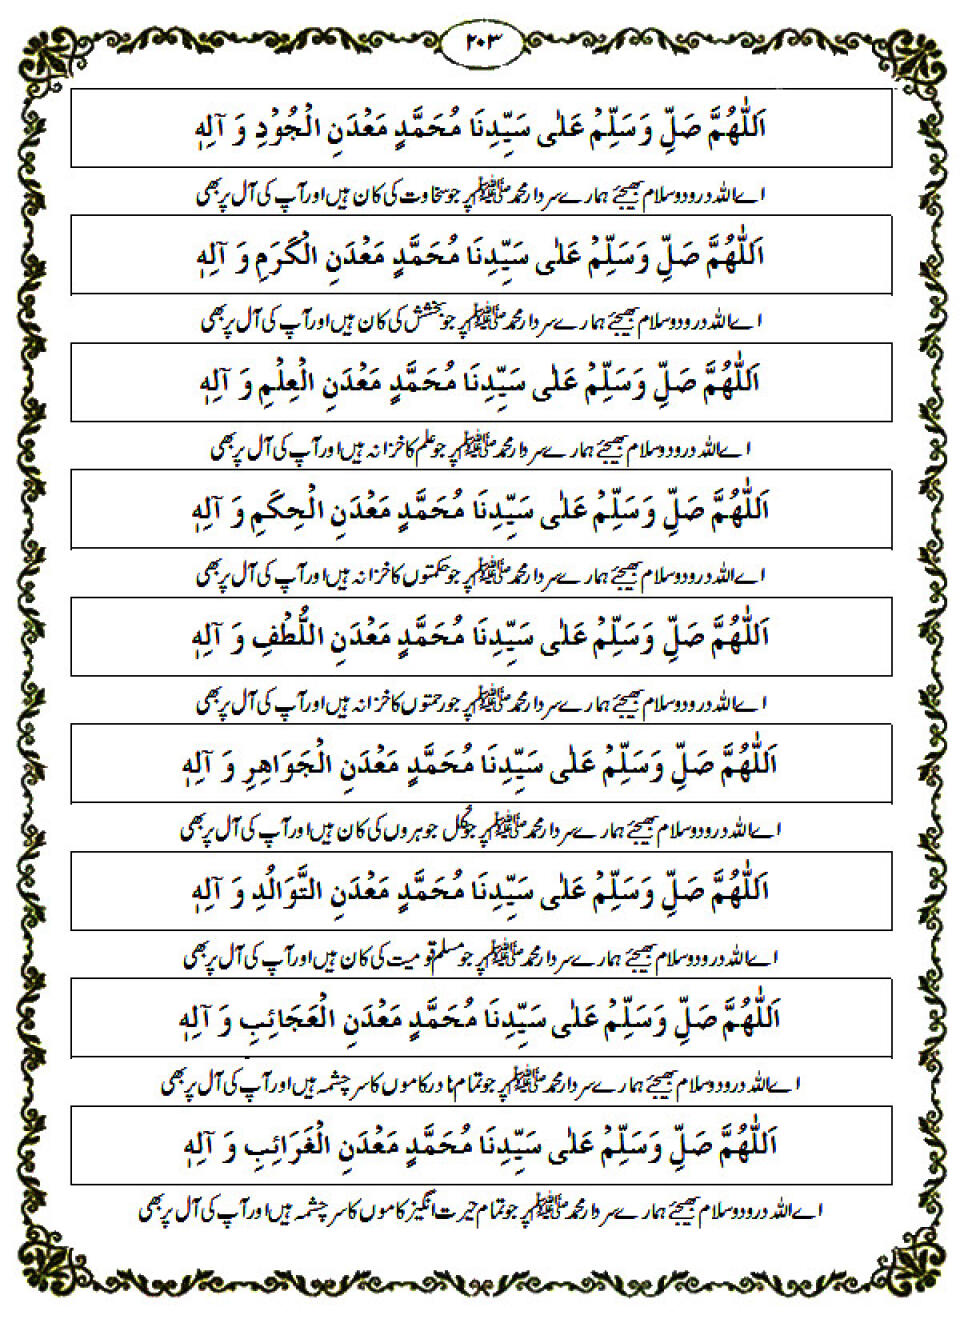 ۲۰۳
اَللّٰهُمَّ صَلِّ وَسَلِّمْ عَلٰى سَيِّدِنَا مُحَمَّدٍ مَعْدَنِ الْجُوْدِ وَ آلِهٖ
اے اللہ درود و سلام بھیجئے ہمارے سردار محمد ﷺ پر جو سخاوت کی کان ہیں اور آپ کی آل پر بھی
اَللّٰهُمَّ صَلِّ وَسَلِّمْ عَلٰى سَيِّدِنَا مُحَمَّدٍ مَعْدَنِ الْكَرَمِ وَ آلِهٖ
اے اللہ درود و سلام بھیجئے ہمارے سردار محمد ﷺ پر جو بخشش کی کان ہیں اور آپ کی آل پر بھی
اَللّٰهُمَّ صَلِّ وَسَلِّمْ عَلٰى سَيِّدِنَا مُحَمَّدٍ مَعْدَنِ الْعِلْمِ وَ آلِهٖ
اے اللہ درود و سلام بھیجئے ہمارے سردار محمد ﷺ پر جو علم کا خزانہ ہیں اور آپ کی آل پر بھی
اَللّٰهُمَّ صَلِّ وَسَلِّمْ عَلٰى سَيِّدِنَا مُحَمَّدٍ مَعْدَنِ الْحِكَمِ وَ آلِهٖ
اے اللہ درود و سلام بھیجئے ہمارے سردار محمد ﷺ پر جو حکمتوں کا خزانہ ہیں اور آپ کی آل پر بھی
اَللّٰهُمَّ صَلِّ وَسَلِّمْ عَلٰى سَيِّدِنَا مُحَمَّدٍ مَعْدَنِ اللُّطْفِ وَ آلِهٖ
اے اللہ درود و سلام بھیجئے ہمارے سردار محمد ﷺ پر جو رحمتوں کا خزانہ ہیں اور آپ کی آل پر بھی
اَللّٰهُمَّ صَلِّ وَسَلِّمْ عَلٰى سَيِّدِنَا مُحَمَّدٍ مَعْدَنِ الْجَوَاهِرِ وَ آلِهٖ
اے اللہ درود و سلام بھیجئے ہمارے سردار محمد ﷺ پر جو کُل جوہروں کی کان ہیں اور آپ کی آل پر بھی
اَللّٰهُمَّ صَلِّ وَسَلِّمْ عَلٰى سَيِّدِنَا مُحَمَّدٍ مَعْدَنِ التَّوَالُدِ وَ آلِهٖ
اے اللہ درود و سلام بھیجئے ہمارے سردار محمد ﷺ پر جو مسلم قومیت کی کان ہیں اور آپ کی آل پر بھی
اَللّٰهُمَّ صَلِّ وَسَلِّمْ عَلٰى سَيِّدِنَا مُحَمَّدٍ مَعْدَنِ الْعَجَائِبِ وَ آلِهٖ
اے اللہ درود و سلام بھیجئے ہمارے سردار محمد ﷺ پر جو تمام نادر کاموں کا سرچشمہ ہیں اور آپ کی آل پر بھی
اَللّٰهُمَّ صَلِّ وَسَلِّمْ عَلٰى سَيِّدِنَا مُحَمَّدٍ مَعْدَنِ الْغَرَائِبِ وَ آلِهٖ
اے اللہ درود و سلام بھیجئے ہمارے سردار محمد ﷺ پر جو تمام حیرت انگیز کاموں کا سرچشمہ ہیں اور آپ کی آل پر بھی